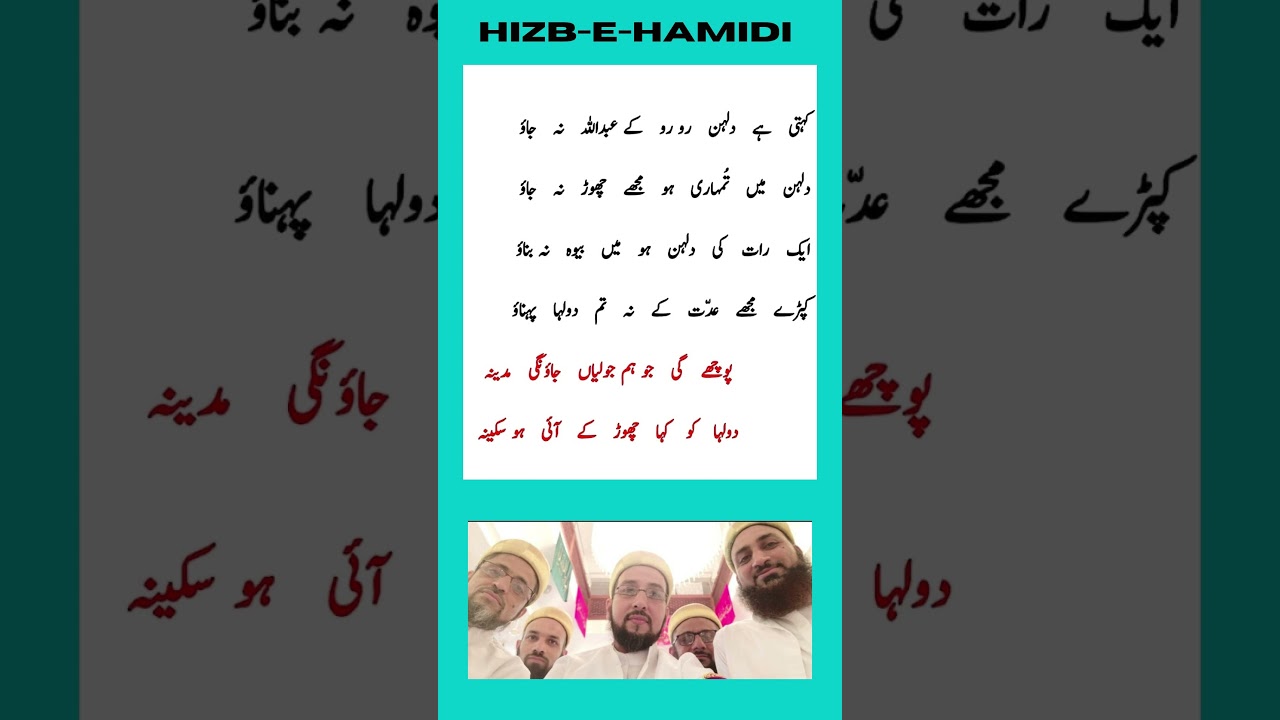 HIZB-E-HAMIDI
کہتی ہے دلہن رو رو کے عبداللہ نہ جاؤ
دلہن میں تُمہاری ہو مجھے چھوڑ نہ جاؤ
ایک رات کی دلہن ہو میں بیوہ نہ بناؤ
کپڑے مجھے عدّت کے نہ تم دولہا پہناؤ
پوچھے گی جو ہم جولیاں جاؤنگی مدینہ
دولہا کو کہا چھوڑ کے آئی ہو سکینہ